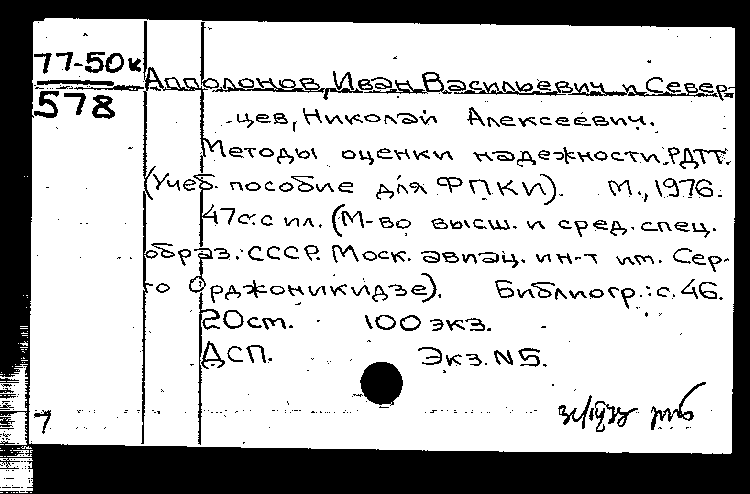 77-50к
578
Апполонов, Иван Васильевич и Север-
цев, Николай Алексеевич.
Методы оценки надежности РДТТ.
(Учеб. пособие для ФПКИ). М., 1976.
47с. с ил. (М-во высш. и сред. спец.
образ. СССР. Моск. авиац. ин-т им. Сер-
го Орджоникидзе). Библиогр.: с. 46.
20см. 100 экз.
ДСП. Экз. N5.
7